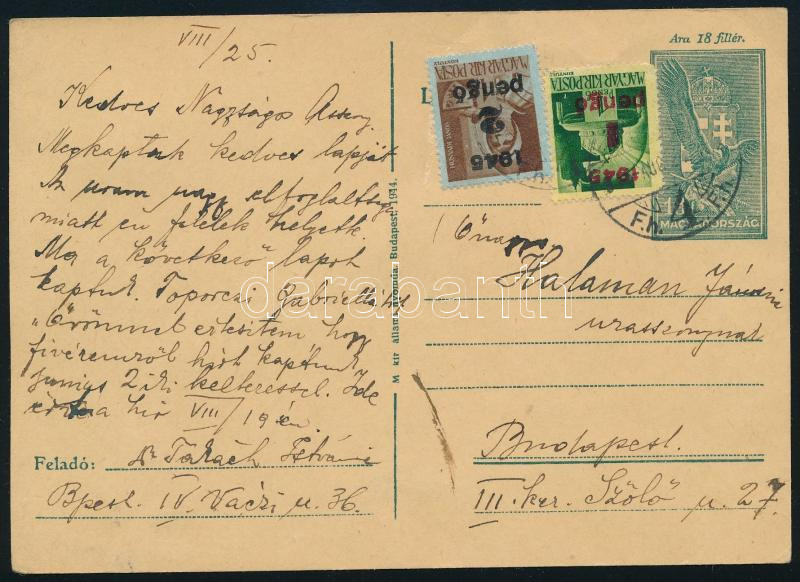 VIII/25.
Kedves Nagyságos Asszony.
Megkaptuk kedves lapját
Az uram nagy elfoglaltsága
miatt én felelek helyette.
Ma a következő lapot
kaptuk Toporczi Gabriellától
"Örömmel értesitem hogy
fivéremről hírt kaptunk
junius 2 iki keltezéssel. Ide
a hír VIII/19 én.
Feladó: Dr Takách Istvánné
Bpest. IV. Váczi u. 36.
M. kir. államnyomda, Budapest. 1944.
MAGYAR KIR. POSTA
1945
2
pengő
MAGYAR KIR. POSTA
1945
1
pengő
Ara 18 fillér.
18
MAGYARORSZÁG
4
F.h.
Kalamán Jánosné
urasszonynak
Budapest.
III. ker. Szőlő u. 27.
darabanth